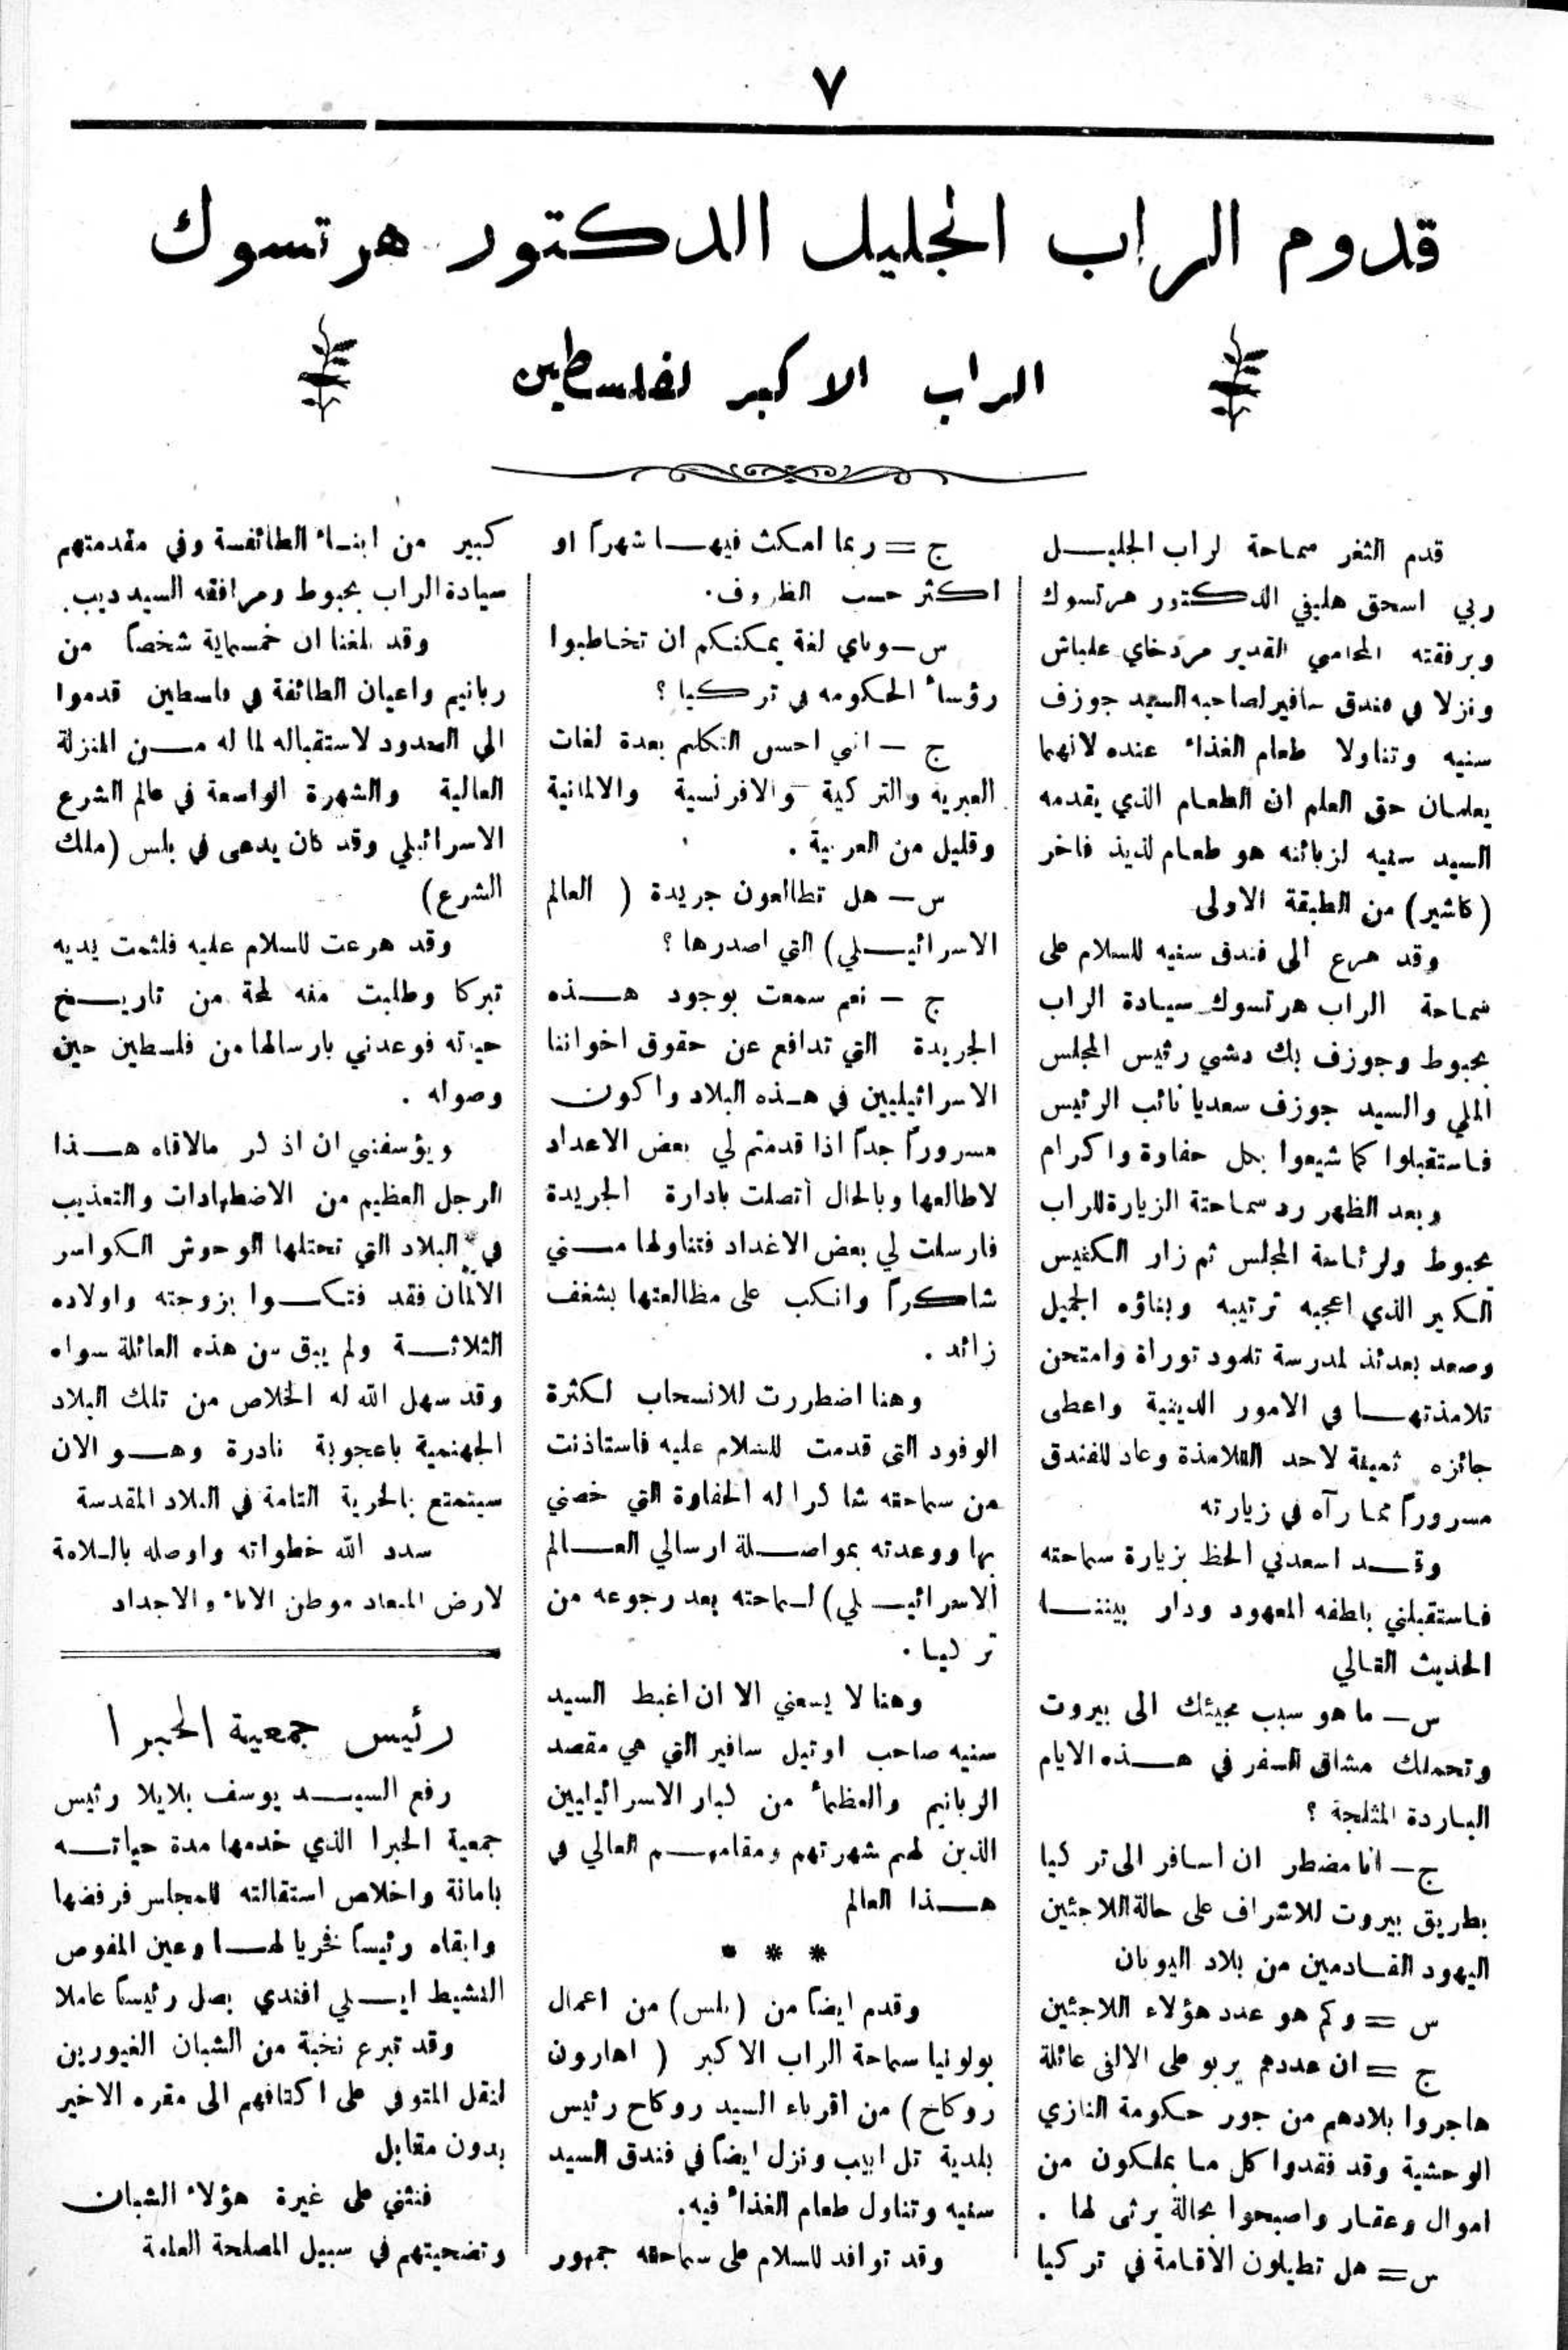 ٧
قدوم الراب الجليل الدكتور هرتسوك
الراب الاكبر لفلسطين
قدم الثغر سماحة لراب الجليل
ربي اسحق هليفي الدكتور هرتسوك
وبرفقته المحامي القدير مردخاي علباش
ونزلا في فندق سافير لصاحبه السيد جوزف
سنيه وتناولا طعام الغذاء عنده لانهما
يعلمان حق العلم ان الطعام الذي يقدمه
السيد سنيه لزبائنه هو طعام لذيذ فاخر
(كاشير) من الطبقة الاولى
وقد هرع الى فندق سنيه للسلام على
سماحة الراب هرتسوك سيادة الراب
بحبوط وجوزف بك دشي رئيس المجلس
الملي والسيد جوزف سعديا نائب الرئيس
فاستقبلوا كما شيعوا بكل حفاوة واكرام
وبعد الظهر رد سماحتة الزيارة للراب
بحبوط ولرئاسة المجلس ثم زار الكنيس
الكبير الذي اعجبه ترتيبه وبناؤه الجميل
وصعد بعدئذ لمدرسة تلمود توراة وامتحن
تلامذتها في الامور الدينية واعطى
جائزه ثمينة لاحد التلامذة وعاد للفندق
مسروراً مما رآه في زيارته
وقد اسعدني الحظ بزيارة سماحته
فاستقبلني بلطفه المعهود ودار بيننا
الحذيث التالي
س – ما هو سبب مجيئك الى بيروت
وتحملك مشاق السفر في هذه الايام
الباردة المثلجة ؟
ج – انا مضطر ان اسافر الى تركيا
بطريق بيروت للاشراف على حالة اللاجئين
اليهود القادمين من بلاد اليونان
س = وكم هو عدد هؤلاء اللاجئين
ج = ان عددهم يربو على الالفي عائلة
هاجروا بلادهم من جور حكومة النازي
الوحشية وقد فقدوا كل ما يملكون من
اموال وعقار واصبحوا بحالة يرثى لها .
س = هل تطيلون الأقامة في تركيا
ج = ربما امكث فيها شهراً او
اكثر حسب الظروف.
س – وباي لغة يمكنكم ان تخاطبوا
رؤساء الحكومه في تركيا ؟
ج – انني احسن التكلم بعدة لغات
العبرية والتركية والافرنسية والالمانية
وقليل من العربية .
س – هل تطالعون جريدة ( العالم
الاسرائيلي) التي اصدرها ؟
ج – نعم سمعت بوجود هذه
الجريدة التي تدافع عن حقوق اخواننا
الاسرائيليين في هذه البلاد واكون
مسروراً جداً اذا قدمتم لي بعض الاعداد
لاطالعها وبالحال أتصلت بادارة الجريدة
فارسلت لي بعض الاغداد فتناولها مني
شاكراً وانكب على مظالعتها بشغف
زائد .
وهنا اضطررت للانسحاب لكثرة
الوفود التي قدمت للسلام عليه فاستاذنت
من سماحته شاكرا له الحفاوة التي خصني
بها ووعدته بمواصلة ارسالي العالم
الاسرائيلي) لسماحته بعد رجوعه من
تركيا .
وهنا لا يسعني الا ان اغبط السيد
سنيه صاحب اوتيل سافير التي هي مقصد
الربانيم والعظماء من كبار الاسرائيليين
الذين لهم شهرتهم ومقامهم العالي في
هذا العالم
* * *
وقدم ايضاً من (بلس) من اعمال
بولونيا سماحة الراب الاكبر ( اهارون
روكاح ) من اقرباء السيد روكاح رئيس
بلدية تل ابيب ونزل ايضاً في فندق السيد
سنيه وتناول طعام الغذاء فيه.
وقد توافد للسلام على سماحته جمهور
كبير من ابناء الطائفسة وفي مقدمتهم
سيادة الراب بحبوط ومرافقه السيد ديب.
وقد بلغنا ان خمسماية شخصاً من
ربانيم واعيان الطائفة في فلسطين قدموا
الى الحدود لاستقباله لما له من المنزلة
العالية والشهرة الواسعة في عالم الشرع
الاسرائيلي وقد كان يدعى في بلس (ملك
الشرع)
وقد هرعت للسلام عليه فلثمت يديه
تبركا وطلبت منه لمحة من تاريخ
حياته فوعدني بارسالها من فلسطين حين
وصوله .
ويؤسفني ان اذكر مالاقاه هذا
الرجل العظيم من الاضطهادات والتعذيب
في البلاد التي تحتلها الوحوش الكواسر
الالمان فقد فتكوا بزوجته واولاده
الثلاثة ولم يبق من هذه العائلة سواه
وقد سهل الله له الخلاص من تلك البلاد
الجهنمية باعجوبة نادرة وهو الان
سيتمتع بالحرية التامة في البلاد المقدسة
سدد الله خطواته واوصله بالسلامة
لارض الميعاد موطن الاباء والاجداد
رئيس جمعية الحبرا
رفع السيد يوسف بلايلا رئيس
جمعية الحبرا الذي خدمها مدة حياته
بامانة واخلاص استقالته للمجلس فرفضها
وابقاه رئيساً فخريا لها وعين المفوض
النشيط ايلي افندي بصل رئيساً عاملا
وقد تبرع نخبة من الشبان الغيورين
لنقل المتوفي على اكتافهم الى مقره الاخير
بدون مقابل
فنثني على غيرة هؤلاء الشبان
وتضحيتهم في سبيل المصلحة العامة